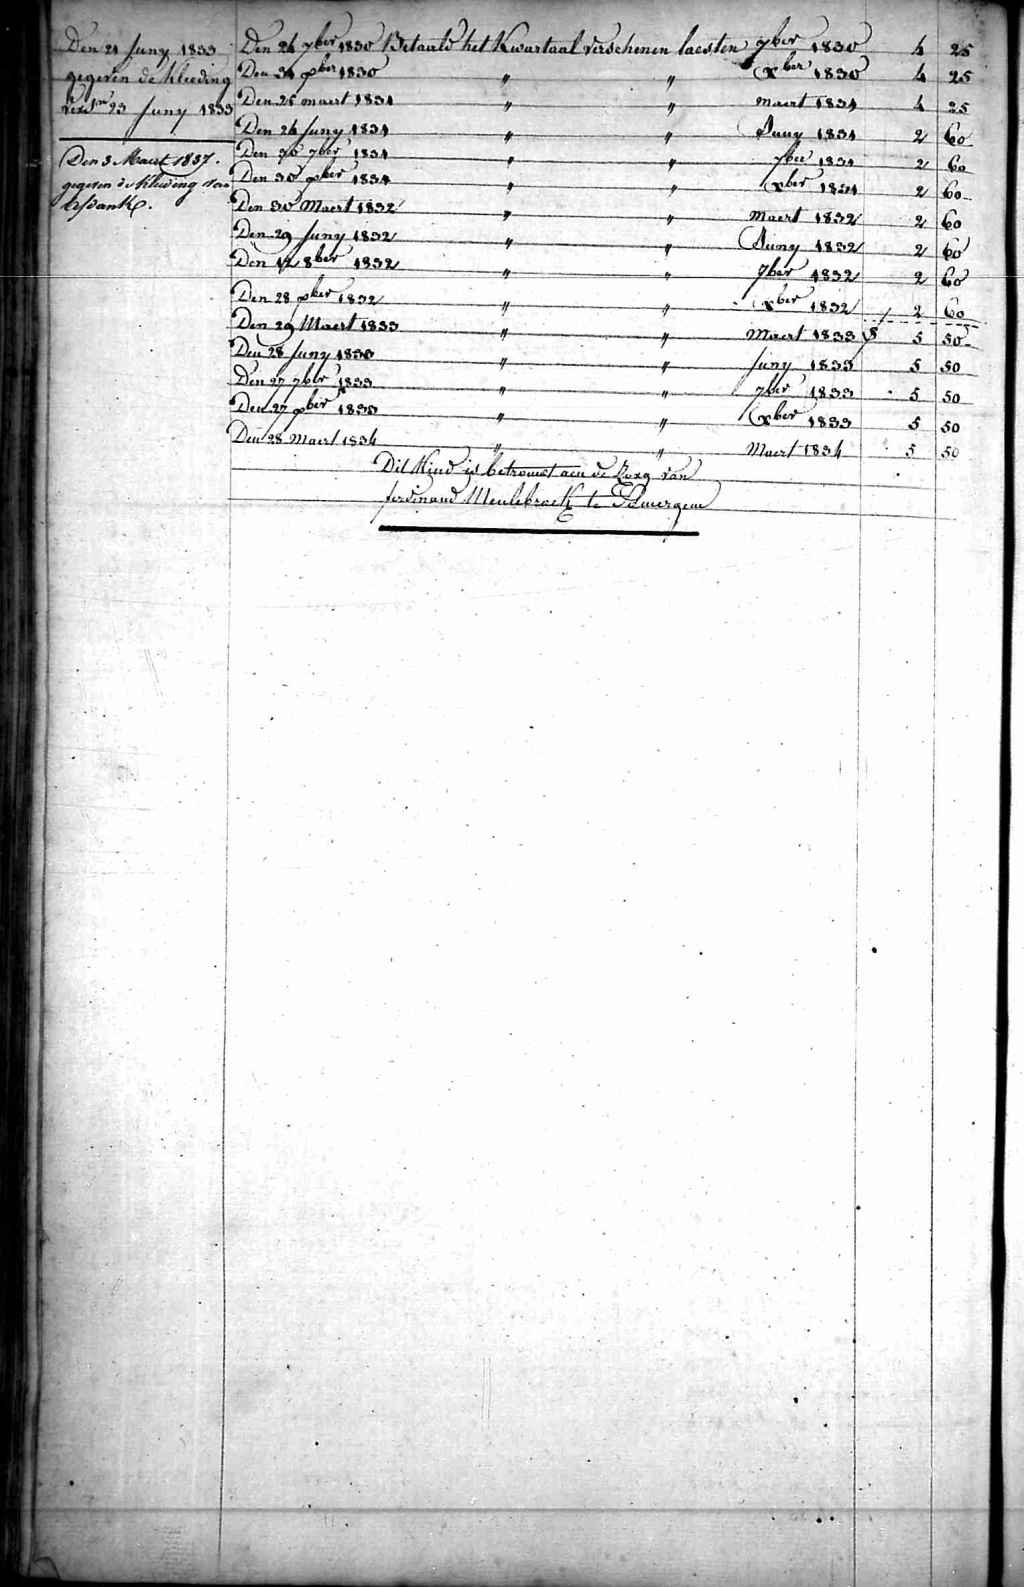 Den 21 Juny 1833
gegeven de kleeding
verd.m 23 Juny 1833
Den 3 Maert 1837.
gegeven de kleeding van
Den 24 7ber 1830 Betaeld het Kwartaal verschenen laesten 7ber 1830 4 25
Den 31 xber 1830 " " xber 1830 4 25
Den 25 maert 1831 " " maert 1831 4 25
Den 24 Juny 1831 " " Juny 1831 2 60
Den 30 7ber 1831 " " 7ber 1831 2 60
Den 30 xber 1831 " " xber 1831 2 60
Den 30 Maert 1832 " " maert 1832 2 60
Den 29 Juny 1832 " " Juny 1832 2 60
Den 12 8ber 1832 " " 7ber 1832 2 60
Den 28 xber 1832 " " xber 1832 2 60
Den 29 Maert 1833 " " Maert 1833 5 50
Den 28 Juny 1833 " " Juny 1833 5 50
Den 27 7ber 1833 " " 7ber 1833 5 50
Den 27 xber 1833 " " xber 1833 5 50
Den 28 Maert 1834 " " Maert 1834 5 50
Dit Kind is betrouwt aen de Zorg van
ferdinand Meulebroeck te